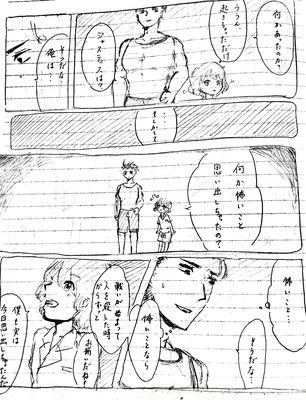 何かあったのか?
ううん
起きちゃっただけ
ジャスティスは?
そうだな
俺は
……
もしかして
何か怖いこと
思い出しちゃったの?
怖いこと…
そうだな…
怖いことなら
戦いが始まって
人を殺した時
からずっと
お揃いだね
僕も実は
今日思い出しちゃったんだ